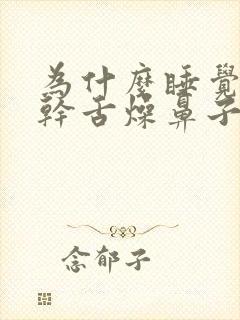 為什麼睡覺
幹舌燥鼻子
念郁子